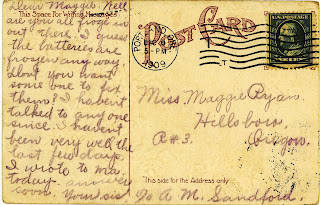 Dear Maggie. Well
This Space for Writing Messages
are you all frozen
out there. I guess
the batteries are
frozen any way.
Dont you want
some one to fix
them? I havent
talked to any one
since. I havent
been very well the
last few days.
I wrote to ma
today. answer
soon. Your sis
POST CARD
1909
Miss Maggie Ryan.
Hillsboro,
R#3. Oregon.
This side for the Address only.
A. M. Sandford.